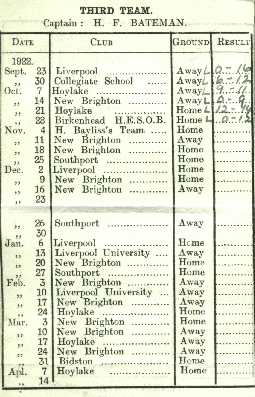 THIRD TEAM.
Captain : H. F. BATEMAN.
DATE CLUB GROUND RESULT
1922.
Sept. 23 Liverpool Away L 0-16
„ 30 Collegiate School Away L 6-12
Oct. 7 Hoylake Away L 9-11
„ 14 New Brighton Away L 0-9
„ 21 Hoylake Home L 12-14
„ 28 Birkenhead H.E.S.O.B. Home L 0-12
Nov. 4 H. Bayliss's Team Home
„ 11 New Brighton Away
„ 18 New Brighton Home
„ 25 Southport Home
Dec. 2 Liverpool Home
„ 9 New Brighton Home
„ 16 New Brighton Away
„ 23
„ 26 Southport Away
„ 30
Jan. 6 Liverpool Home
„ 13 Liverpool University Away
„ 20 New Brighton Home
„ 27 Southport Home
Feb. 3 New Brighton Away
„ 10 Liverpool University Away
„ 17 New Brighton Away
„ 24 Hoylake Home
Mar. 3 New Brighton Home
„ 10 New Brighton Away
„ 17 Hoylake Away
„ 24 New Brighton Away
„ 31 Bidston Home
Apl. 7 Hoylake Home
„ 14